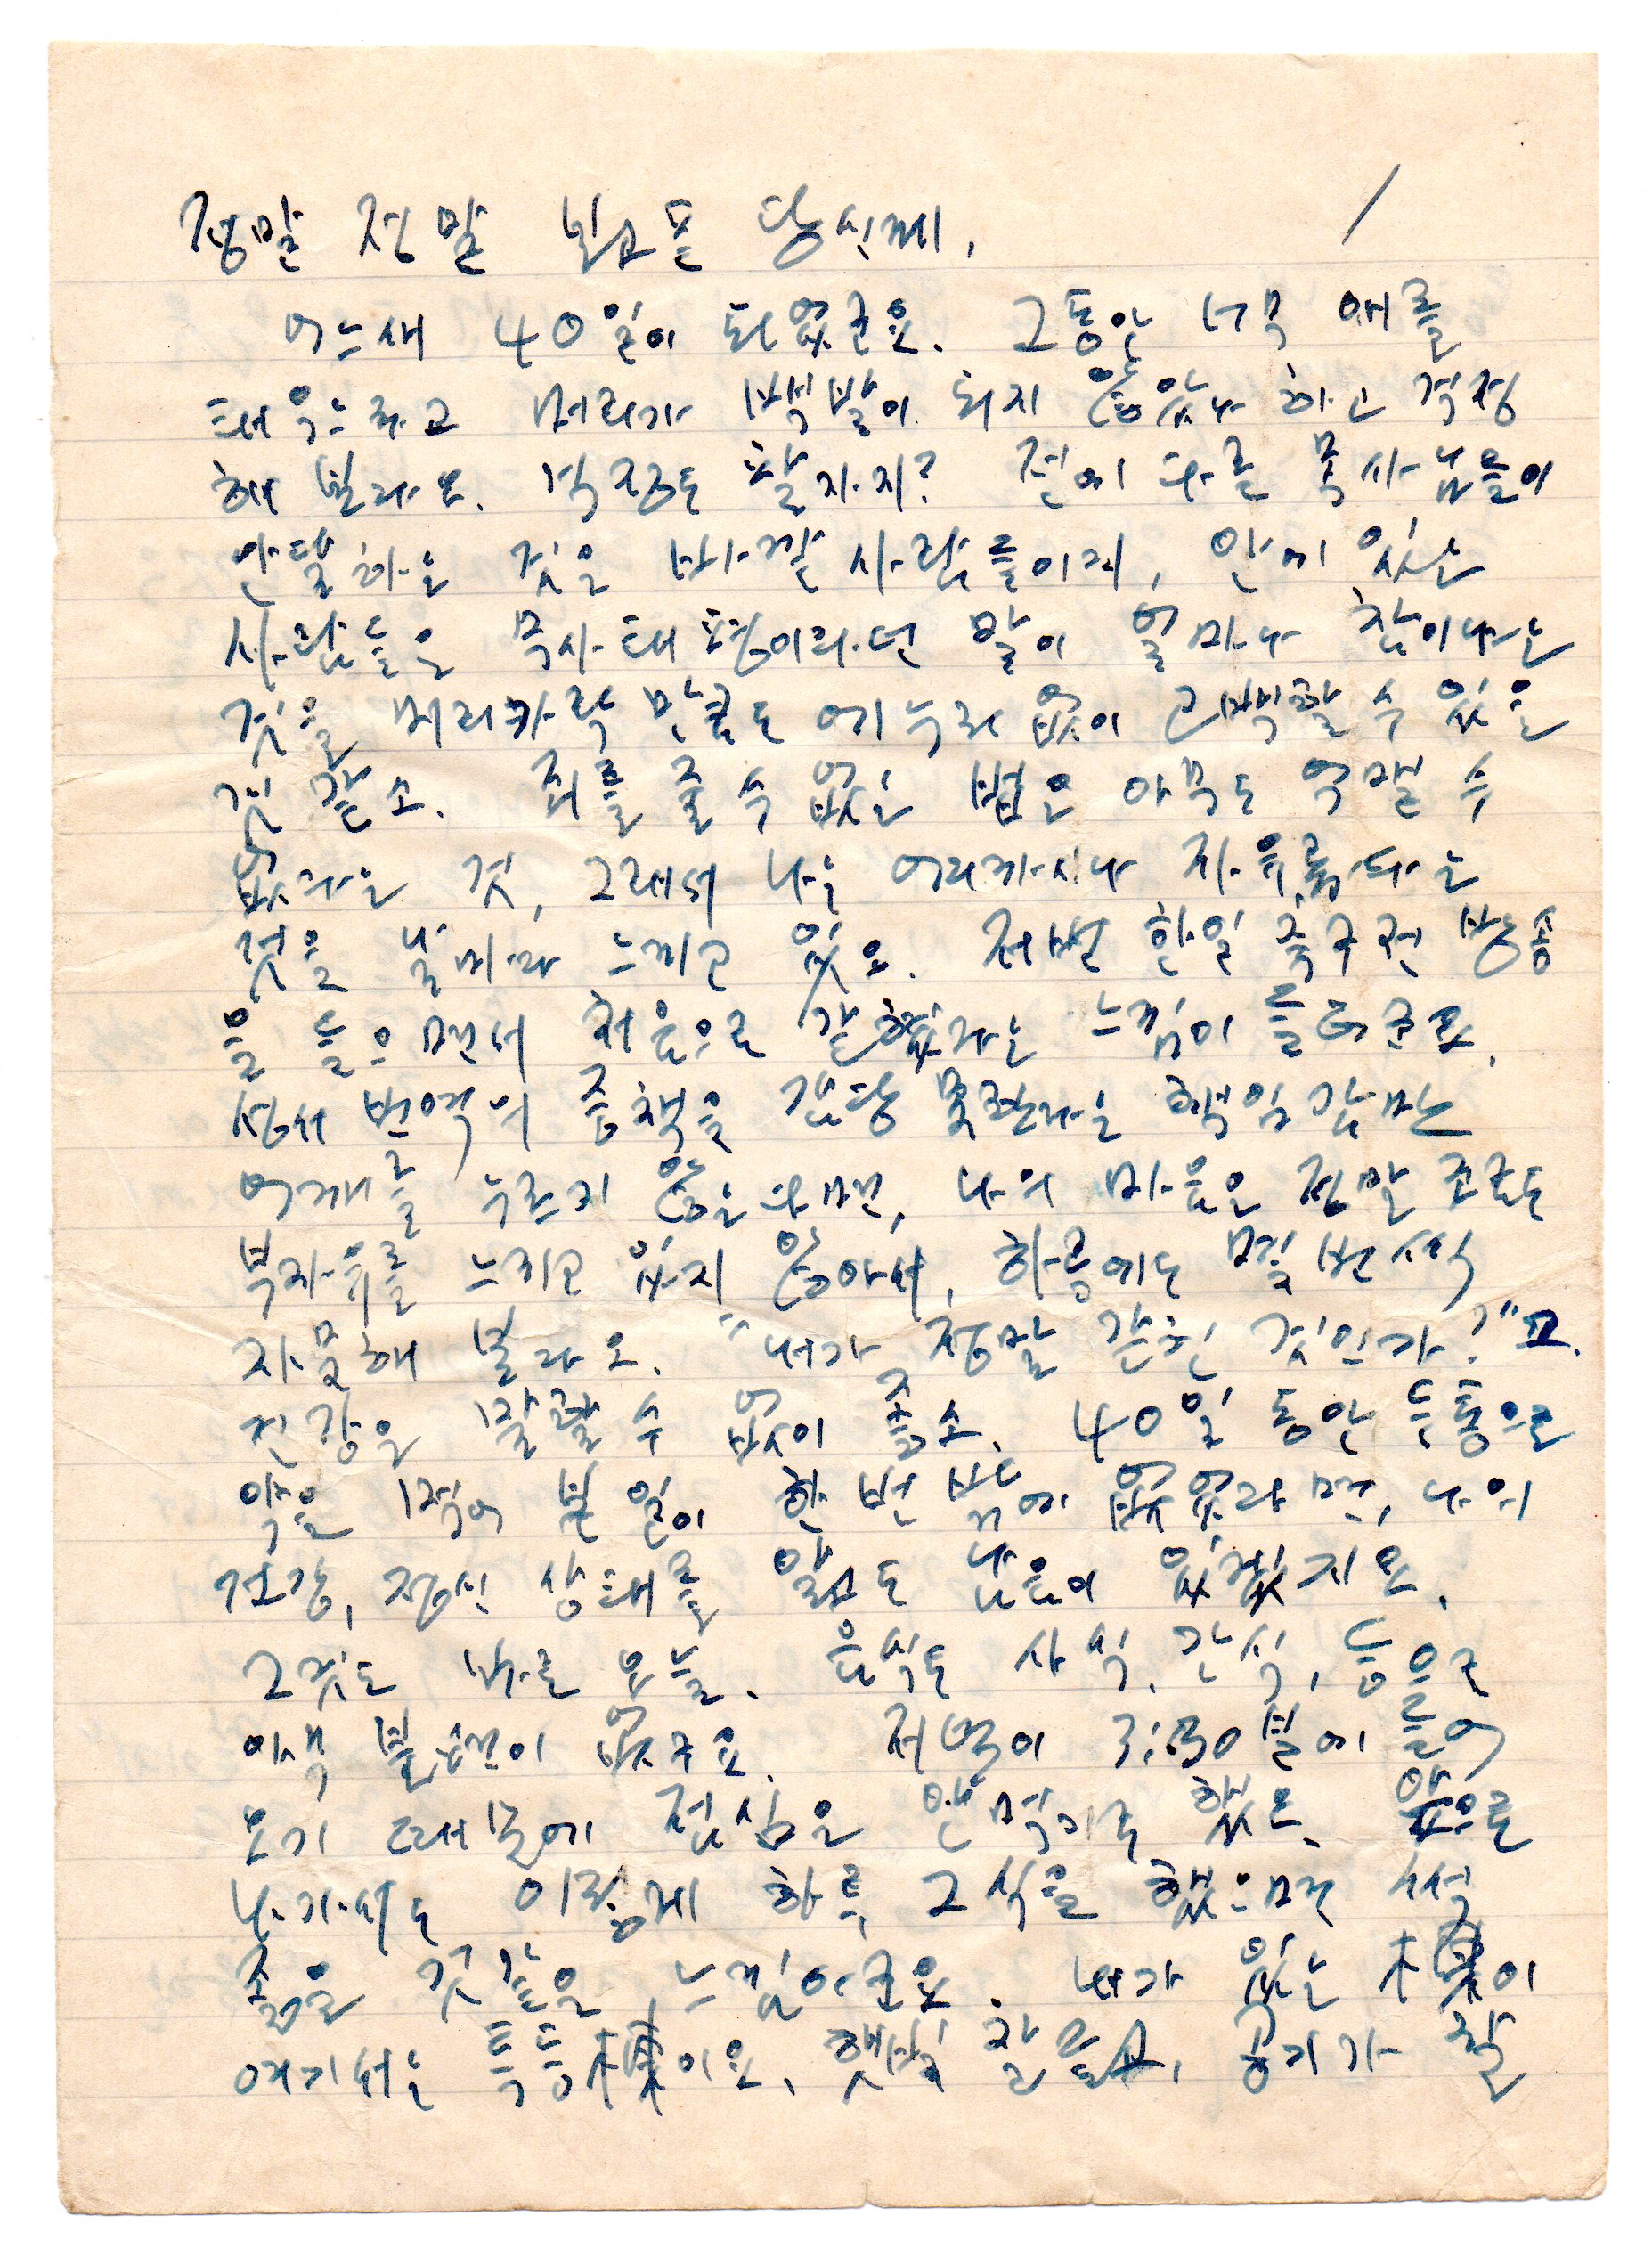 정말 정말 보고픈 당신께, /
어느새 40일이 되었군요. 그동안 너무 애를
태우느라고 머리가 백발이 되지 않았나 하는 걱정
해 본다오. 걱정도 팔자지? 전에 다른 목사님들이
안달하는 것은 바깥 사람들이지, 안에 있는
사람들은 무사태평이라던 말이 얼마나 참이냐는
것을 머리카락만큼도 에누리 없이 고백할 수 있을
것 같소. 죄를 줄 수 없는 법은 아무도 억맬 수
없다는 것, 그래서 나는 어디까지나 자유롭다는
것을 날마다 느끼고 있소. 저번 한일 축구전 방송
을 들으면서 처음으로 갇혔다는 느낌이 들더군요.
성서 번역의 중책을 감당 못한다는 책임감만
어깨를 누르지 않는다면, 나의 마음은 정말 조금도
부자유를 느끼고 있지 않아서, 하루에도 몇 번씩
자문해 본다오. "내가 정말 갇힌 것인가?"고.
건강은 말할 수 없이 좋소. 40일 동안 두통으로
약을 먹어 본 일이 한 번 밖에 없었다면, 나의
건강, 정신 상태를 알고도 남음이 있겠지요.
그것도 반 알을. 음식도 사식, 간식, 등으로
아무 불편이 없구요. 저녁이 3:30분에 들어
오기 때문에 점심은 안 먹기로 했소. 앞으로
나가서도 이렇게 하루 2식을 했으면 썩
좋을 것 같은 느낌이군요. 내가 있는 校이
여기서는 특등校이오. 햇빛 잘 들고, 공기가 잘